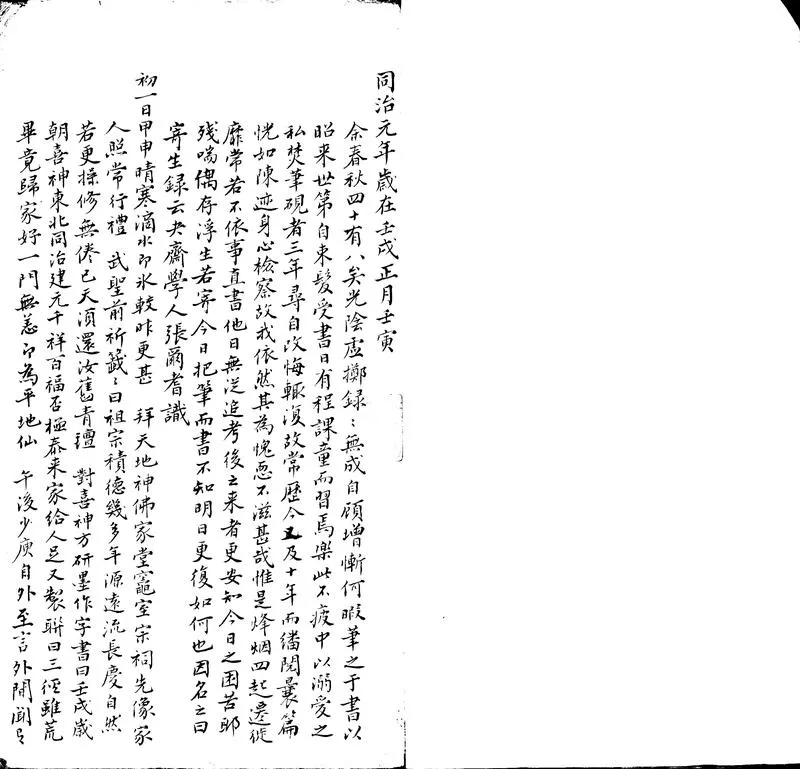 同治元年歲在壬戌正月壬寅
余春秋四十有八矣光陰虛擲録〻無成自顧增慚何暇筆之于書以
昭来世第自束髮受書日有程課童而習焉樂此不疲中以溺愛之
私焚筆硯者三年尋自改悔輒復故常歷今又及十年而繙閱曩篇
恍如陳迹身心檢察故我依然其為愧恧不滋甚哉惟是烽烟四起遷徙
靡常若不依事直書他日無從追考後之来者更安知今日之困苦耶
残喘偶存浮生若寄今日把筆而書不知明日更復如何也因名之曰
寄生録云夬齋學人張爾耆識
初一日甲申晴寒滴水即氷較昨更甚 拜天地神佛家堂竈室宗祠先像家
人照常行禮 武聖前祈籤〻曰祖宗積德幾多年源遠流長慶自然
若更操修無倦已天須還汝舊青氊 對喜神方研墨作字書曰壬戌歲
朝喜神東北同治建元千祥百福否極泰来家給人足又製聯曰三徑雖荒
畢竟歸家好一門無恙即為平地仙 午後少庾自外至言外間聞